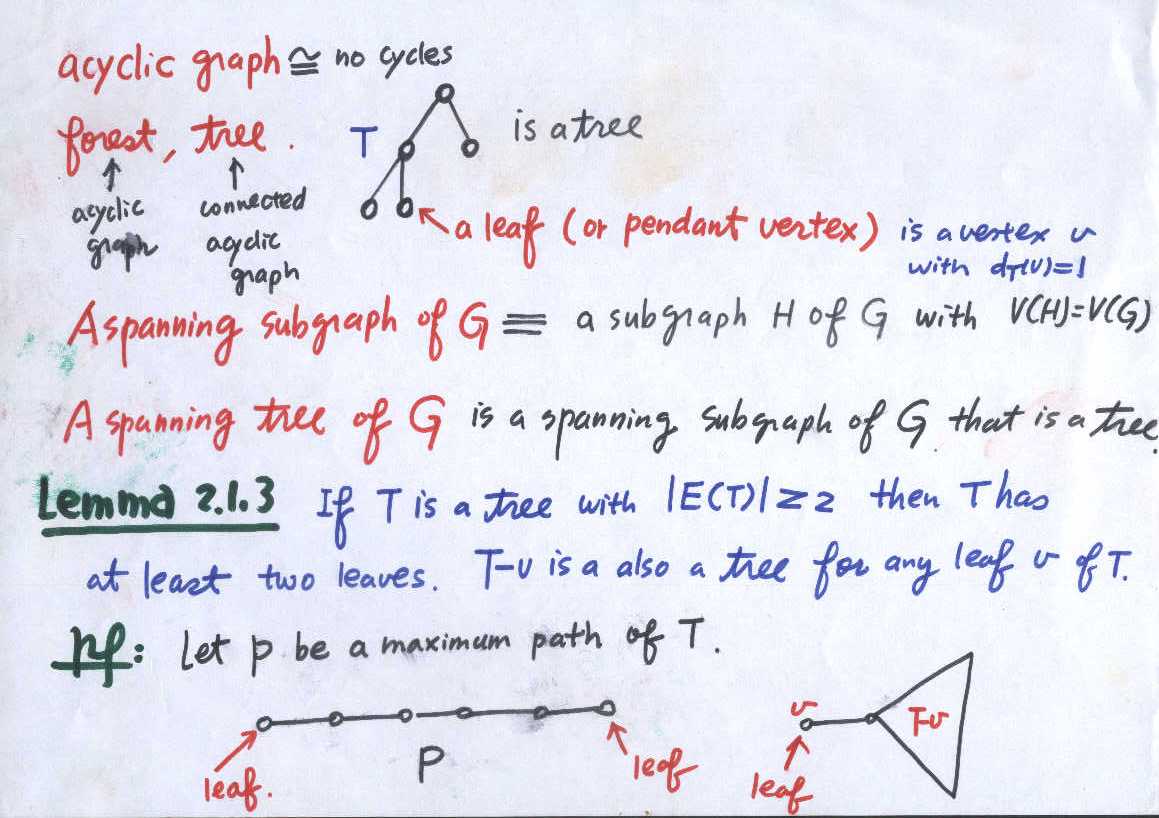 acyclic graph ≅ no cycles
forest, tree. T is a tree
↑ ↑
acyclic graph
connected acyclic graph
a leaf (or pendant vertex) is a vertex v
with d_T(v)=1
A spanning subgraph of G ≡ a subgraph H of G with V(H)=V(G)
A spanning tree of G is a spanning subgraph of G that is a tree.
Lemma 2.1.3 If T is a tree with |E(T)| ≥ 2 then T has
at least two leaves. T-v is a also a tree for any leaf v of T.
pf: Let P be a maximum path of T.
leaf. P leaf
v T-v
leaf